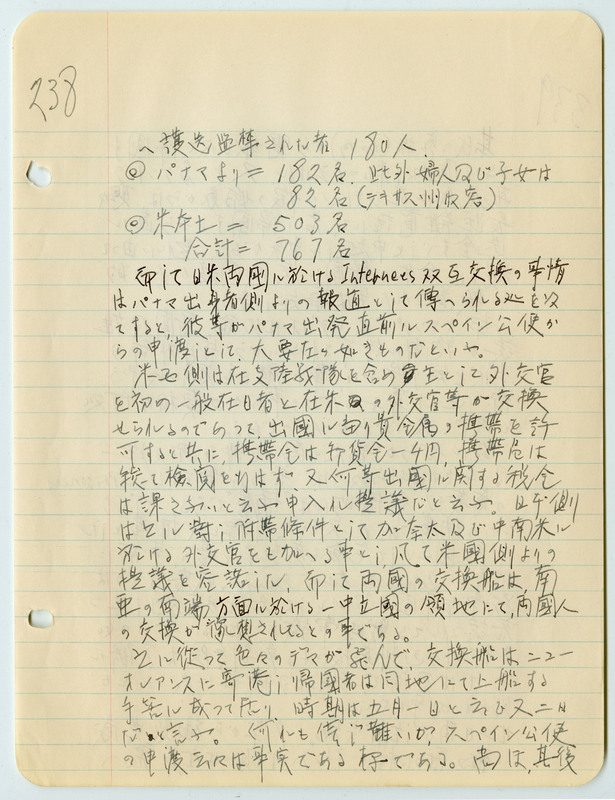 238
へ護送監禁された者 180人
◎ パナマより = 182名. 此外婦人及び子女は
82名(テキサス州収容)
◎ 米本土 = 503名
合計 = 767名
而して日米両國ル於けるInternees双互交換の事情
はパナマ出身者側よりの報道として傳へられる処を以
てすると、彼等がパナマ出発直前ルスペイン公使か
らの申渡しとして、大要左の如きものだといふ。
米國側は在支陸戦隊を含め 主として外交官
を初め一般在日者と在米日の外交官等が交換
せられるのであって出國ル由り貴金属の携帯を許
可すると共に、携帯金は邦貨金一千円、携帯品は
総て検閲を行はず、又何等出國ル関する税金
は課さないと云ふ申入れ提議だと云ふ。日本側
は之ル對し附帯條件として加奈太及び中南米ル
於ける外交官をも加へる事とし、以て米國側よりの
提議を容諾した。而して両國の交換船は、南
亜の南端方面ル於ける一中立國の領地にて、両國人
の交換が豫想されてるとの事である。
之ル従って色々のデマが飛んで、交換船はニュー
オレアンスに寄港し帰國者は同地にて上船する
手筈ル成って居り、時期は五月一日と云ひ又二日
だと言ふ。何れも信じ難いが、スペイン公使
の申渡云々は事実である様である。尚は、其後